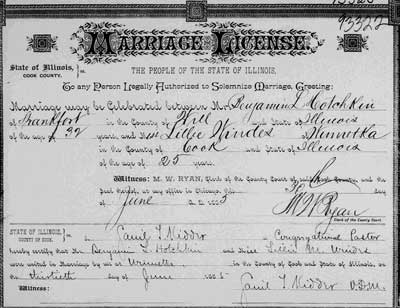 93322
MARRIAGE LICENSE.
State of Illinois,
COOK COUNTY.
ss.
THE PEOPLE OF THE STATE OF ILLINOIS,
To any Person Legally Authorized to Solemnize Marriage, Greeting:
Marriage may be Celebrated between Mr. Benjamin L Hotchkin
of Frankfort in the County of Will and State of Illinois
of the age of 32 years, and Miss Lillie Windes of Winnetka
in the County of Cook and State of Illinois
of the age of 25 years.
Witness: M. W. RYAN, Clerk of the County Court of said Cook County, and the
Seal thereof, at my office in Chicago, this day
of June A.D. 188
M W Ryan
Clerk of the County Court.
STATE OF ILLINOIS,
COUNTY OF COOK.
ss.
a Congregational Pastor
hereby certify that Mr. Benjamin L. Hotchkin and Miss Lillie M. Windes
were united in Marriage by me at Winnetka in the County of Cook and State of Illinois, on
the thirtieth day of June 188
Witness: